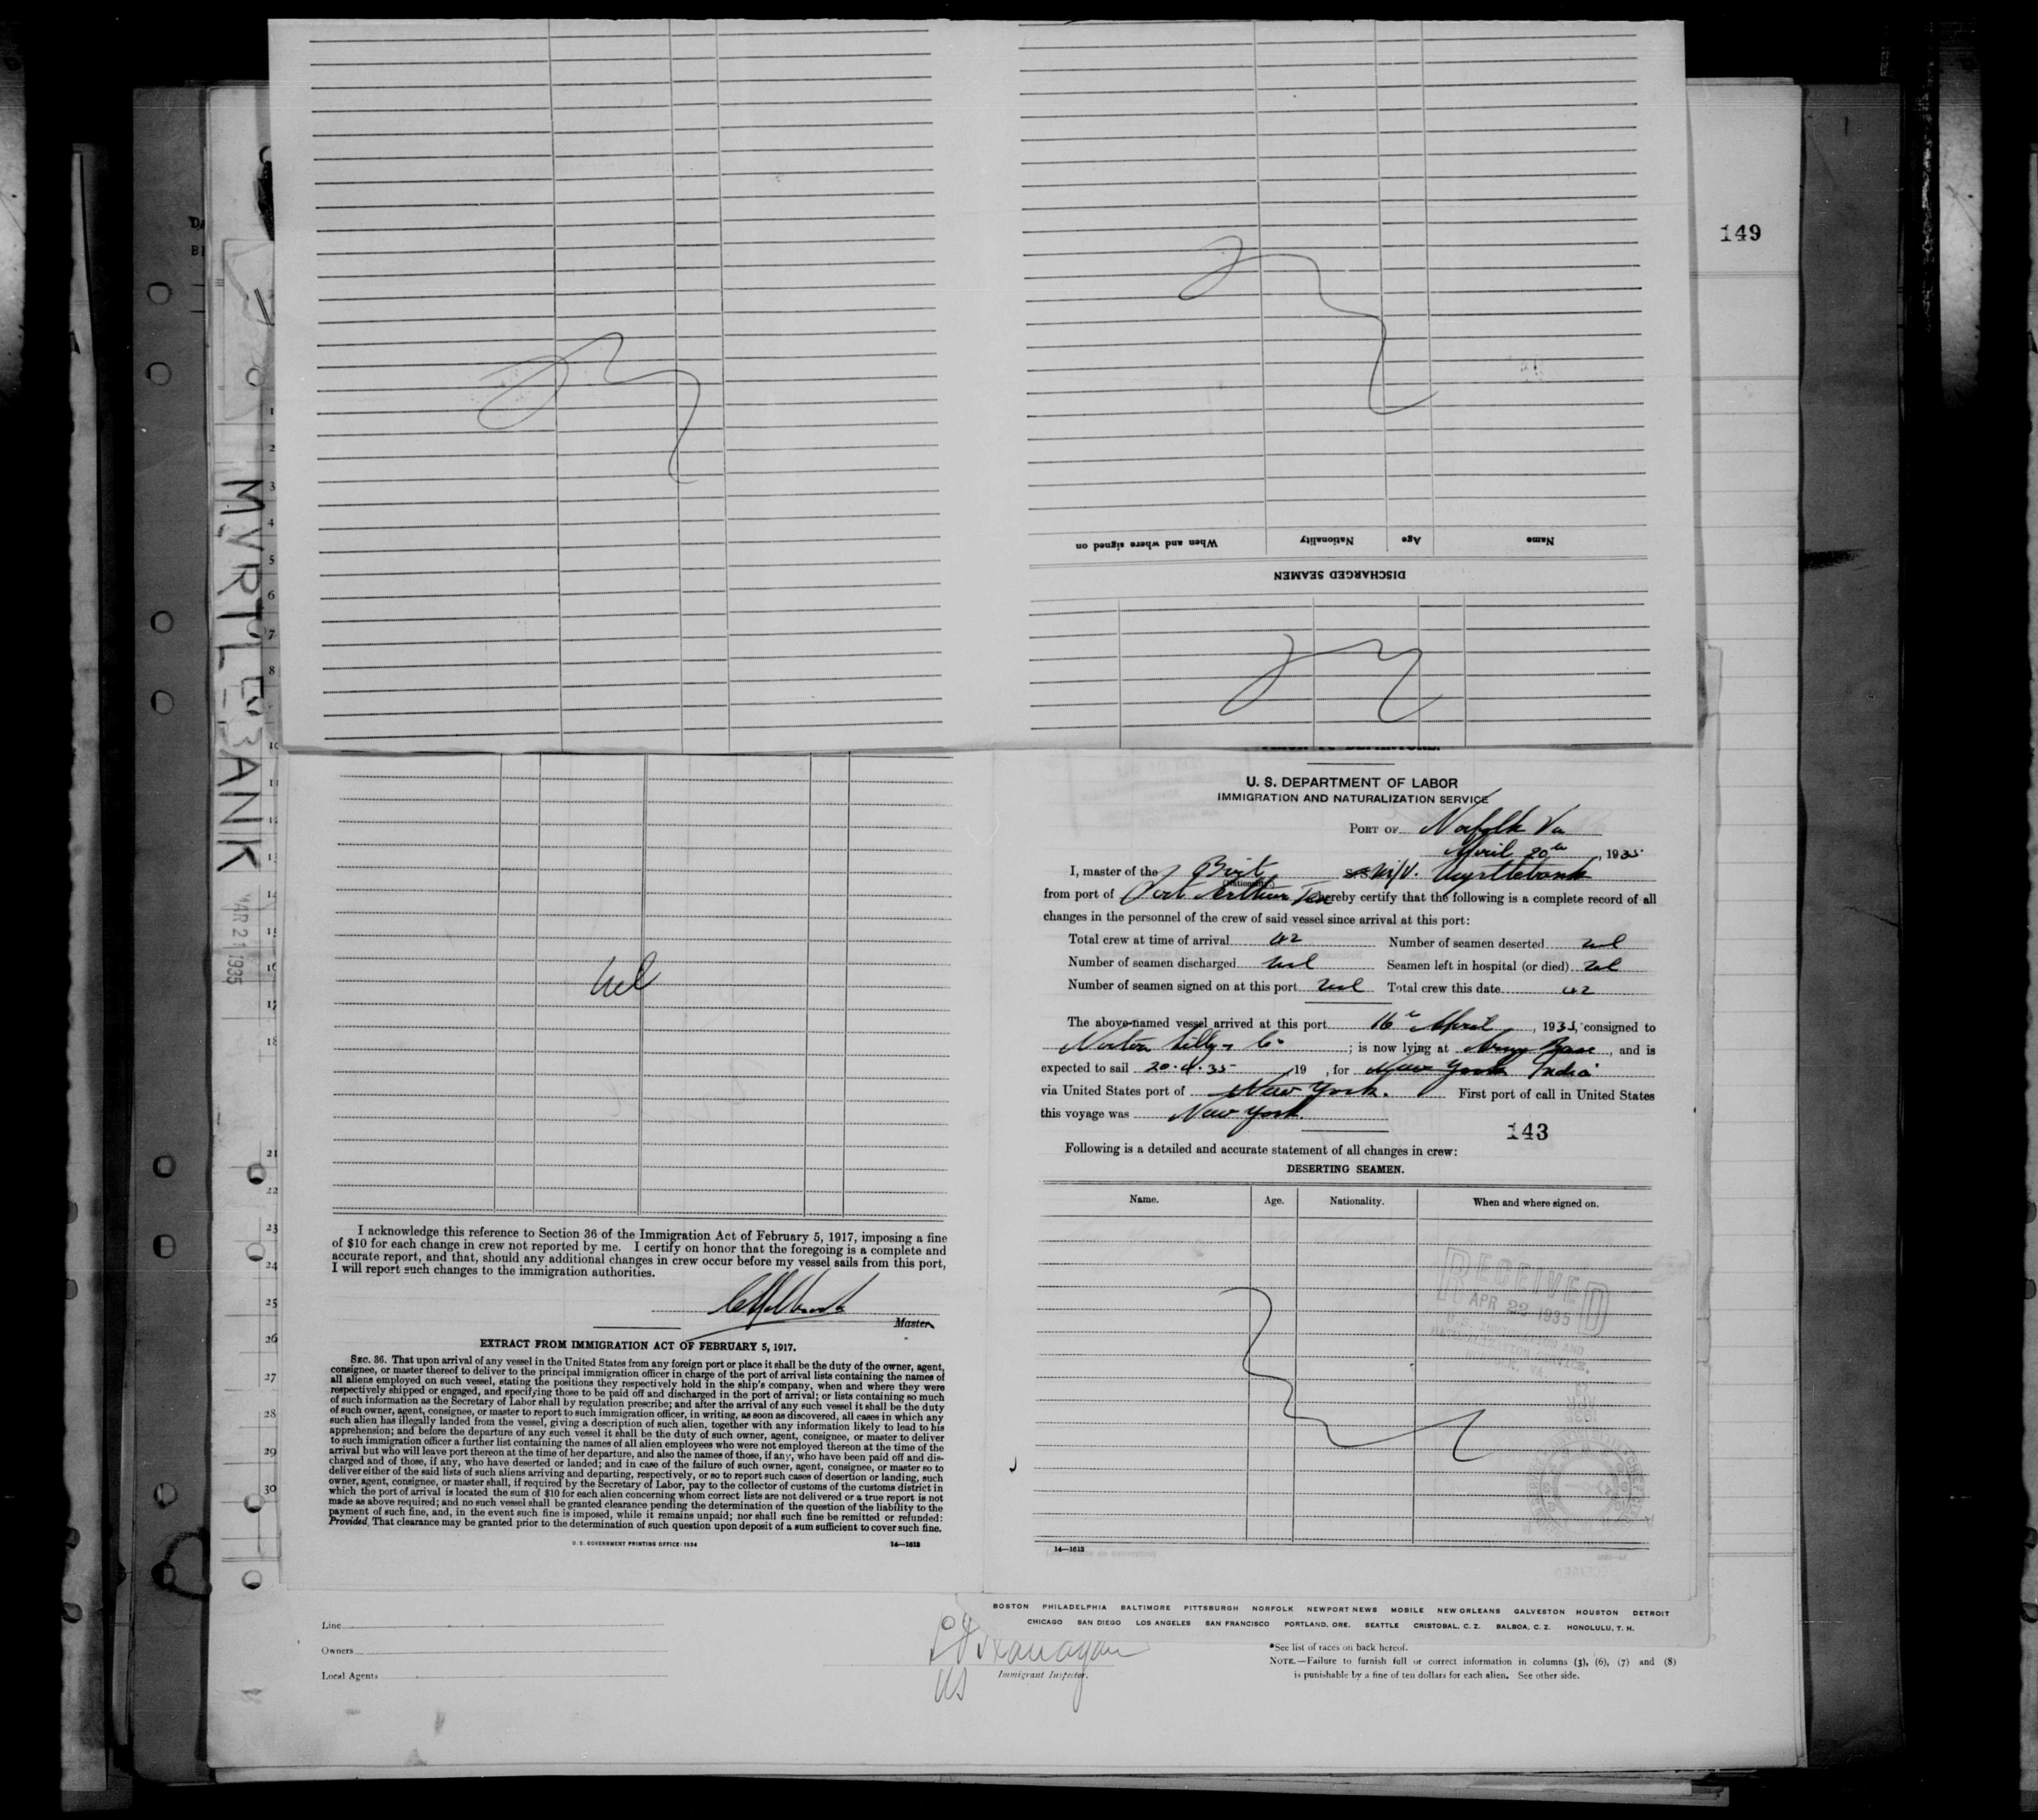 149
When and where signed on Nationality Age Name
DISCHARGED SEAMEN
MYRTLEBANK
MAR 21 1935
1
2
3
4
5
6
7
8
10
11
12
13
14
15
16
17
18
21
22
23
24
25
26
27
28
29
30
Nil
I acknowledge this reference to Section 36 of the Immigration Act of February 5, 1917, imposing a fine
of $10 for each change in crew not reported by me. I certify on honor that the foregoing is a complete and
accurate report, and that, should any additional changes in crew occur before my vessel sails from this port,
I will report such changes to the immigration authorities.
Master.
EXTRACT FROM IMMIGRATION ACT OF FEBRUARY 5, 1917.
SEC. 36. That upon arrival of any vessel in the United States from any foreign port or place it shall be the duty of the owner, agent,
consignee, or master thereof to deliver to the principal immigration officer in charge of the port of arrival lists containing the names of
all aliens employed on such vessel, stating the positions they respectively hold in the ship's company, when and where they were
respectively shipped or engaged, and specifying those to be paid off and discharged in the port of arrival; or lists containing so much
of such information as the Secretary of Labor shall by regulation prescribe; and after the arrival of any such vessel it shall be the duty
of such owner, agent, consignee, or master to report to such immigration officer, in writing, as soon as discovered, all cases in which any
such alien has illegally landed from the vessel, giving a description of such alien, together with any information likely to lead to his
apprehension; and before the departure of any such vessel it shall be the duty of such owner, agent, consignee, or master to deliver
to such immigration officer a further list containing the names of all alien employees who were not employed thereon at the time of the
arrival but who will leave port thereon at the time of her departure, and also the names of those, if any, who have been paid off and dis-
charged and of those, if any, who have deserted or landed; and in case of the failure of such owner, agent, consignee, or master so to
deliver either of the said lists of such aliens arriving and departing, respectively, or so to report such cases of desertion or landing, such
owner, agent, consignee, or master shall, if required by the Secretary of Labor, pay to the collector of customs of the customs district in
which the port of arrival is located the sum of $10 for each alien concerning whom correct lists are not delivered or a true report is not
made as above required; and no such vessel shall be granted clearance pending the determination of the question of the liability to the
payment of such fine, and, in the event such fine is imposed, while it remains unpaid; nor shall such fine be remitted or refunded:
Provided, That clearance may be granted prior to the determination of such question upon deposit of a sum sufficient to cover such fine.
U. S. GOVERNMENT PRINTING OFFICE: 1934 14—1613
U. S. DEPARTMENT OF LABOR
IMMIGRATION AND NATURALIZATION SERVICE
PORT OF Norfolk Va
April 20th, 1935
I, master of the Brit S.S. M/V. Myrtlebank
(Nationality)
from port of Port Arthur Tex hereby certify that the following is a complete record of all
changes in the personnel of the crew of said vessel since arrival at this port:
Total crew at time of arrival 42 Number of seamen deserted nil
Number of seamen discharged nil Seamen left in hospital (or died) nil
Number of seamen signed on at this port nil Total crew this date 42
The above-named vessel arrived at this port 16th April, 1935, consigned to
Norton Lilly & Co; is now lying at Army Base, and is
expected to sail 20.4.35 19 , for New York India
via United States port of New York. First port of call in United States
this voyage was New York.
143
Following is a detailed and accurate statement of all changes in crew:
DESERTING SEAMEN.
Name. Age. Nationality. When and where signed on.
RECEIVED
APR 22 1935
U.S. IMMIGRATION AND
NATURALIZATION SERVICE,
NORFOLK, VA.
14—1613
BOSTON PHILADELPHIA BALTIMORE PITTSBURGH NORFOLK NEWPORT NEWS MOBILE NEW ORLEANS GALVESTON HOUSTON DETROIT
CHICAGO SAN DIEGO LOS ANGELES SAN FRANCISCO PORTLAND, ORE. SEATTLE CRISTOBAL, C. Z. BALBOA, C. Z. HONOLULU, T. H.
Line
Owners
Local Agents
Immigrant Inspector.
*See list of races on back hereof.
NOTE.—Failure to furnish full or correct information in columns (3), (6), (7) and (8)
is punishable by a fine of ten dollars for each alien. See other side.